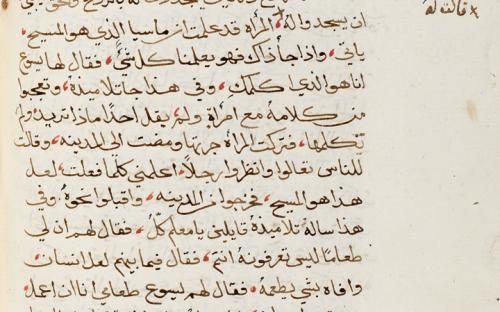 قالت له
ان يسجدوا له المراه قد علمت ان ماسيا الذي هو المسيح
ياتي واذا جا ذاك فهو يعلمنا كل شي فقال لها يسوع
انا هو الذي اكلمك وفي هذا جا تلاميذه وتعجبوا
من كلامه مع امراة ولم يقل احدا ماذا تريد ولم
تكلمها فتركت المراه جرتها ومضت الي المدينه وقالت
للناس تعالوا وانظروا رجلا اعلمني كلما فعلت لعل
هذا هو المسيح فخرجوا من المدينه واقبلوا نحوه وفي
هذا ساله تلاميذه قايلين يا معلم كل فقال لهم ان لي
طعاما ليس تعرفونه انتم فقال فيما بينهم لعل انسان
وافاه بشي يطعمه فقال لهم يسوع طعامي انا ان اعمل